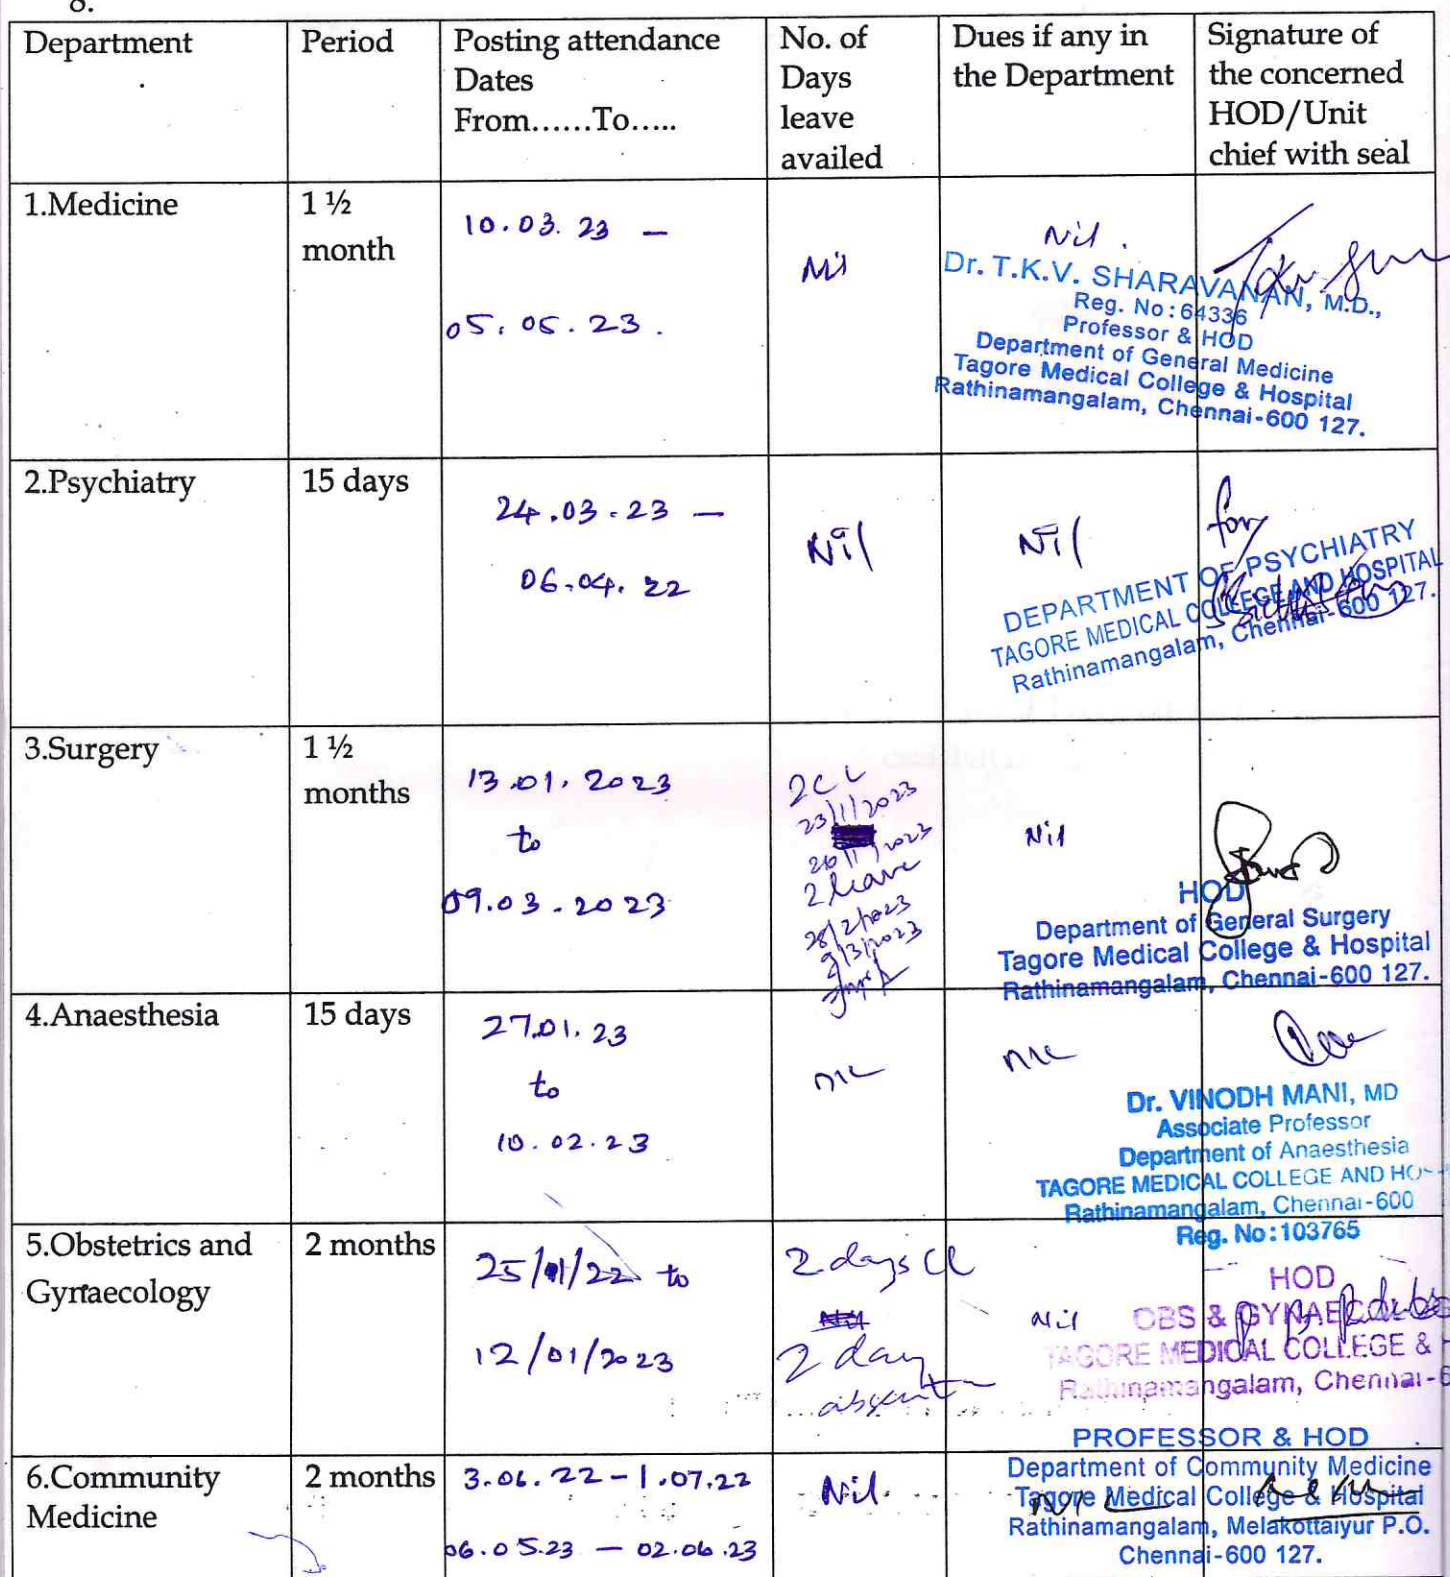 8.
Department
Period
Posting attendance
Dates
From......To.....
No. of
Days
leave
availed
Dues if any in
the Department
Signature of
the concerned
HOD/Unit
chief with seal
1.Medicine
1 ½
month
10.03.23 –
05.05.23.
Nil
Nil.
Dr. T.K.V. SHARAVANAN, M.D.,
Reg. No:64336
Professor & HOD
Department of General Medicine
Tagore Medical College & Hospital
Rathinamangalam, Chennai-600 127.
2.Psychiatry
15 days
24.03.23 –
06.04.22
Nil
Nil
for
DEPARTMENT OF PSYCHIATRY
TAGORE MEDICAL COLLEGE AND HOSPITAL
Rathinamangalam, Chennai-600 127.
3.Surgery
1 ½
months
13.01.2023
to
09.03.2023
2CL
23/1/2023
26/1/2023
2 leave
28/2/2023
9/3/2023
Nil
HOD
Department of General Surgery
Tagore Medical College & Hospital
Rathinamangalam, Chennai-600 127.
4.Anaesthesia
15 days
27.01.23
to
10.02.23
NIL
NIL
Dr. VINODH MANI, MD
Associate Professor
Department of Anaesthesia
TAGORE MEDICAL COLLEGE AND HO
Rathinamangalam, Chennai-600
Reg. No:103765
5.Obstetrics and
Gynaecology
2 months
25/11/22 to
12/01/2023
2 days CL
Nil
2 day
absent
Nil
HOD
OBS & GYNAECOLOG
TAGORE MEDICAL COLLEGE & H
Rathinamangalam, Chennai-6
6.Community
Medicine
2 months
3.06.22 – 1.07.22
06.05.23 – 02.06.23
Nil.
NIL
PROFESSOR & HOD
Department of Community Medicine
Tagore Medical College & Hospital
Rathinamangalam, Melakottaiyur P.O.
Chennai-600 127.